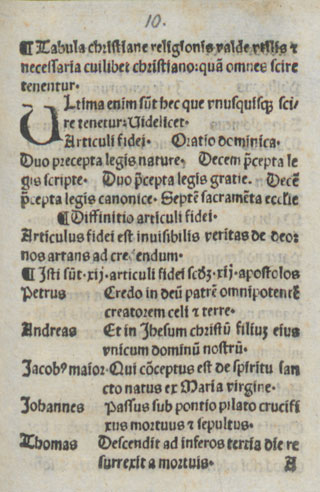 10.
¶ Tabula christiane religionis valde vtilis ⁊
necessaria cuilibet christiano: quā omnes scire
tenentur.
Ultima enim sūt hec que vnusquisqꝫ sci-
re tenetur. Uidelicet.
Articuli fidei. Oratio dominica.
Duo precepta legis nature. Decem p̄cepta le
gis scripte. Duo p̄cepta legis gratie. Decē
p̄cepta legis canonice. Septē sacramēta ecclīe
¶ Diffinitio articuli fidei.
Articulus fidei est inuisibilis veritas de deo:
nos artans ad credendum.
¶ Isti sūt .xij. articuli fidei scdꝫ .xij. apostolos
Petrus Credo in deū patrē omnipotentē
creatorem celi ⁊ terre.
Andreas Et in Jhesum christū filiuꝫ eius
vnicum dominū nostrū.
Jacobꝰ maior. Qui cōceptus est de spiritu san
cto natus ex Maria virgine.
Johannes Passus sub pontio pilato crucifi
xus mortuus ⁊ sepultus.
Thomas Descendit ad inferos tertia die re
surrexit a mortuis. A